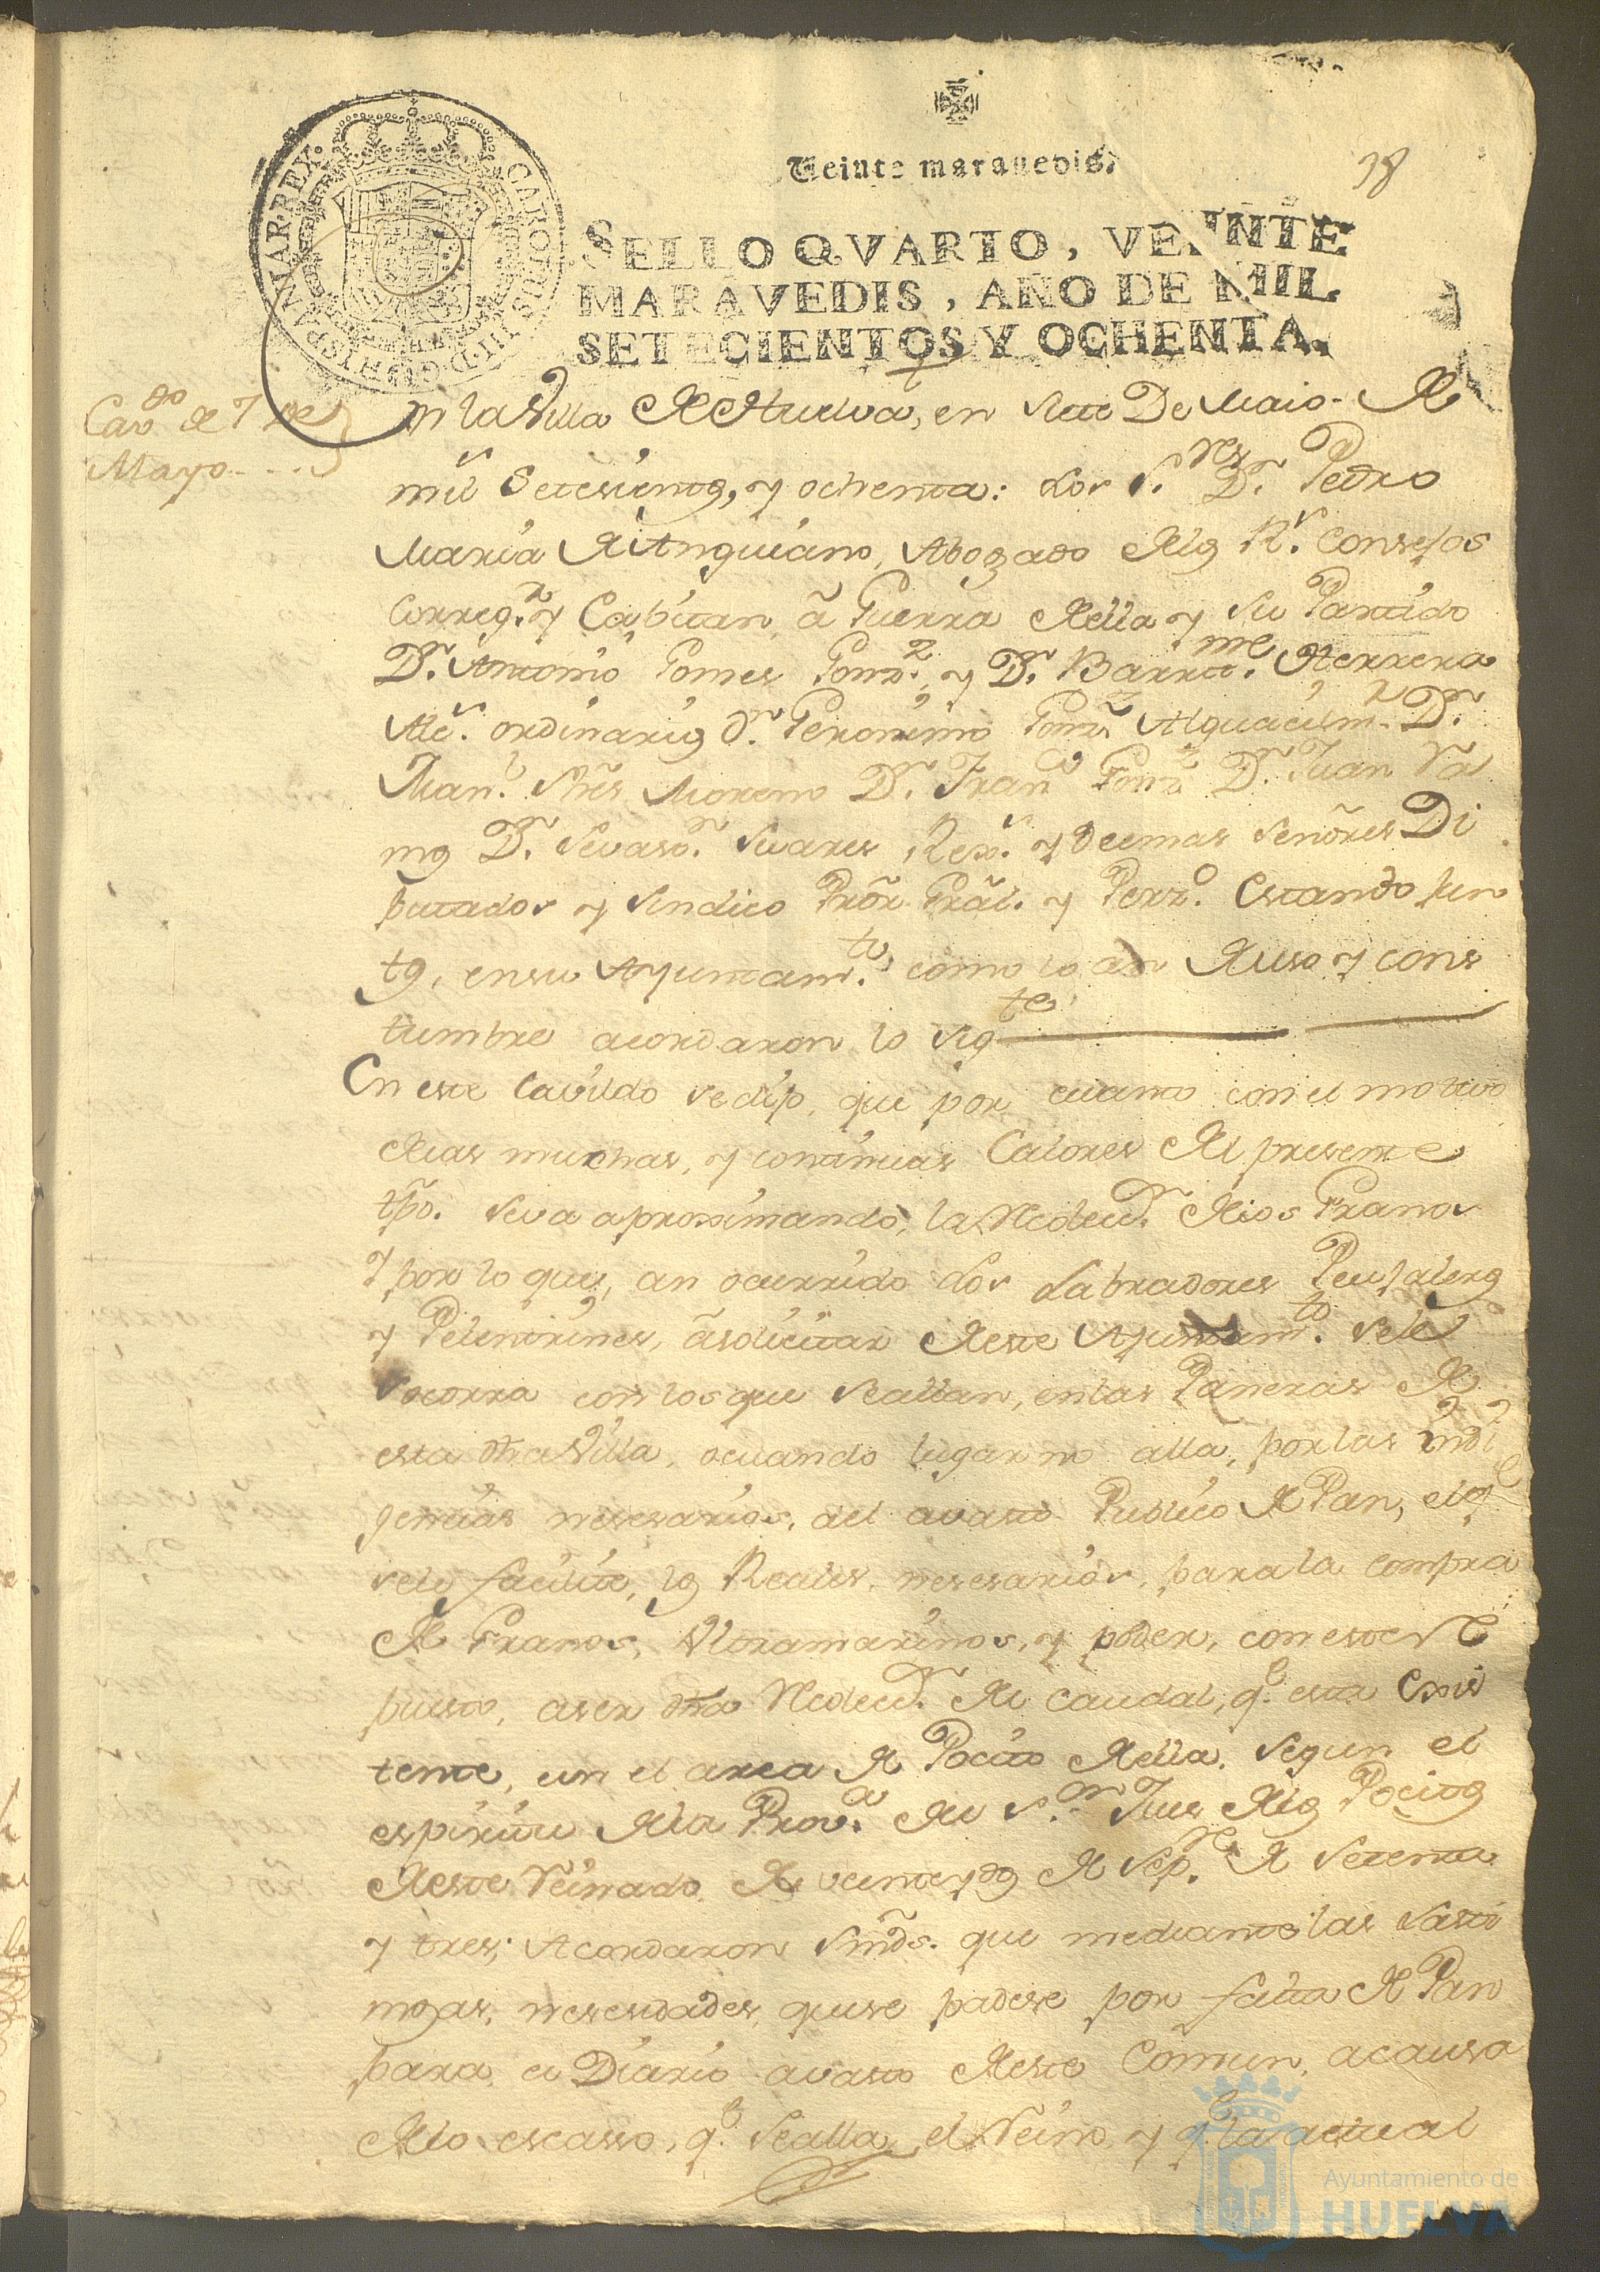 Veinte maravedis.
18
SELLO QVARTO, VEINTE
MARAVEDIS, AÑO DE MIL
SETECIENTOS Y OCHENTA.
CAROLUS III D G HISPANIAR REX
Cavdo de 7 de
Mayo
En la Villa de Huelva, en siete De Maio de
mil Setesientos, y ochenta: los Sres Dn Pedro
Maria de Anguiano, Abogado de los Rs Consejos
Correg.r y Capitan á Guerra de ella y su Partido
Dn Antonio Gomes Gonz.z y Dn Barme Herrera
Alcs ordinarios Dn Geronimo Gonz Alguacil mr Dn
Manl Moreno Dn Franco Gonz Dn Juan
mos Dn Sevasn Suares Rexs y Demas Señores Di
putados y Sindico Pror Gral. y Perzo Estando jun
tos, en su Ayuntamto como lo an de uso y cons
tumbre acordaron lo sigte
En este Cavildo se dijo, que por cuanto con el motivo
de las muchas, y continuas Calores del presente
tpo. se va aproximando, la Recolecon de los Granos
y por lo que, an ocurrido los Labradores Peujaleros
y Pelentrines, á solicitar de este Ayuntamto. se le
socorra con los que se allan, en las Paneras de
esta dha Villa, o cuando lugar no alla, por las indi
gencias nesesarias, del avasto Publico de Pan, el qe
se le facilite, los Reales, nesesarios, para la compra
de Granos, Vltramarinos, y poder, con este Re
puesto, aser dha Recolecon. del caudal, qe esta Exis
tente, en el arca de Pocito de ella. segun el
espiritu de la Prova. del Sor Jues de los Pocitos
de este Reinado de veinte y dos de Sepre de setenta
y tres; Acordaron Smds. que mediante las lasti
mosas, nesesidades, que se padese por falta de Pan
para el Diario avasto de este Comun, a causa
de lo escasso, qe se alla, el Reino, y qe la actual
Ayuntamiento de
HUELVA